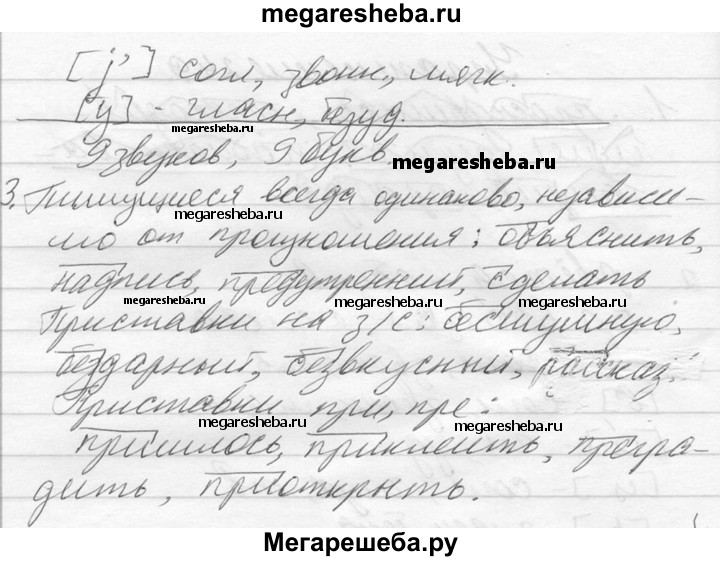 megaresheba.ru
[j'] согл, звонк., мягк.
[у] - гласн, безуд.
megaresheba.ru
9 звуков, 9 букв
megaresheba.ru
3. Пишущиеся всегда одинаково, независи-
megaresheba.ru
мо от произношения: объяснить,
надпись, предутренний, сделать
megaresheba.ru
megaresheba.ru
Приставки на з/с: бесшумную,
бездарный, безвкусный, рассказ.
Приставки при, пре:
megaresheba.ru
megaresheba.ru
пришлось, приклеить, прегра-
дить, приоткрыть.
Мегарешеба.ру